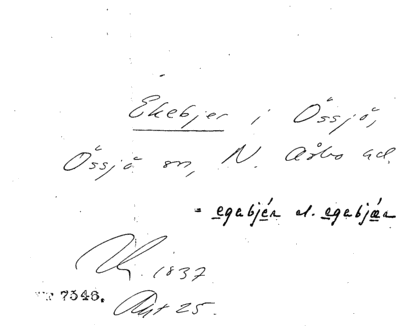 Ekebjer i Össjö,
Össjö sn, N. Åsbo hd.
- egabjér el. egabjær
1837
7348.
25.